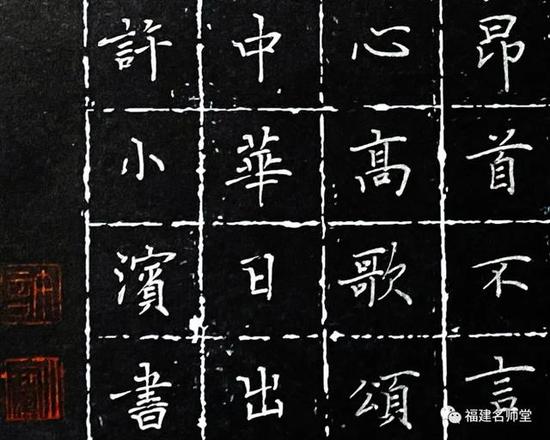 昂首不言
心高歌頌
中華日出
許小濱書
福建名师堂